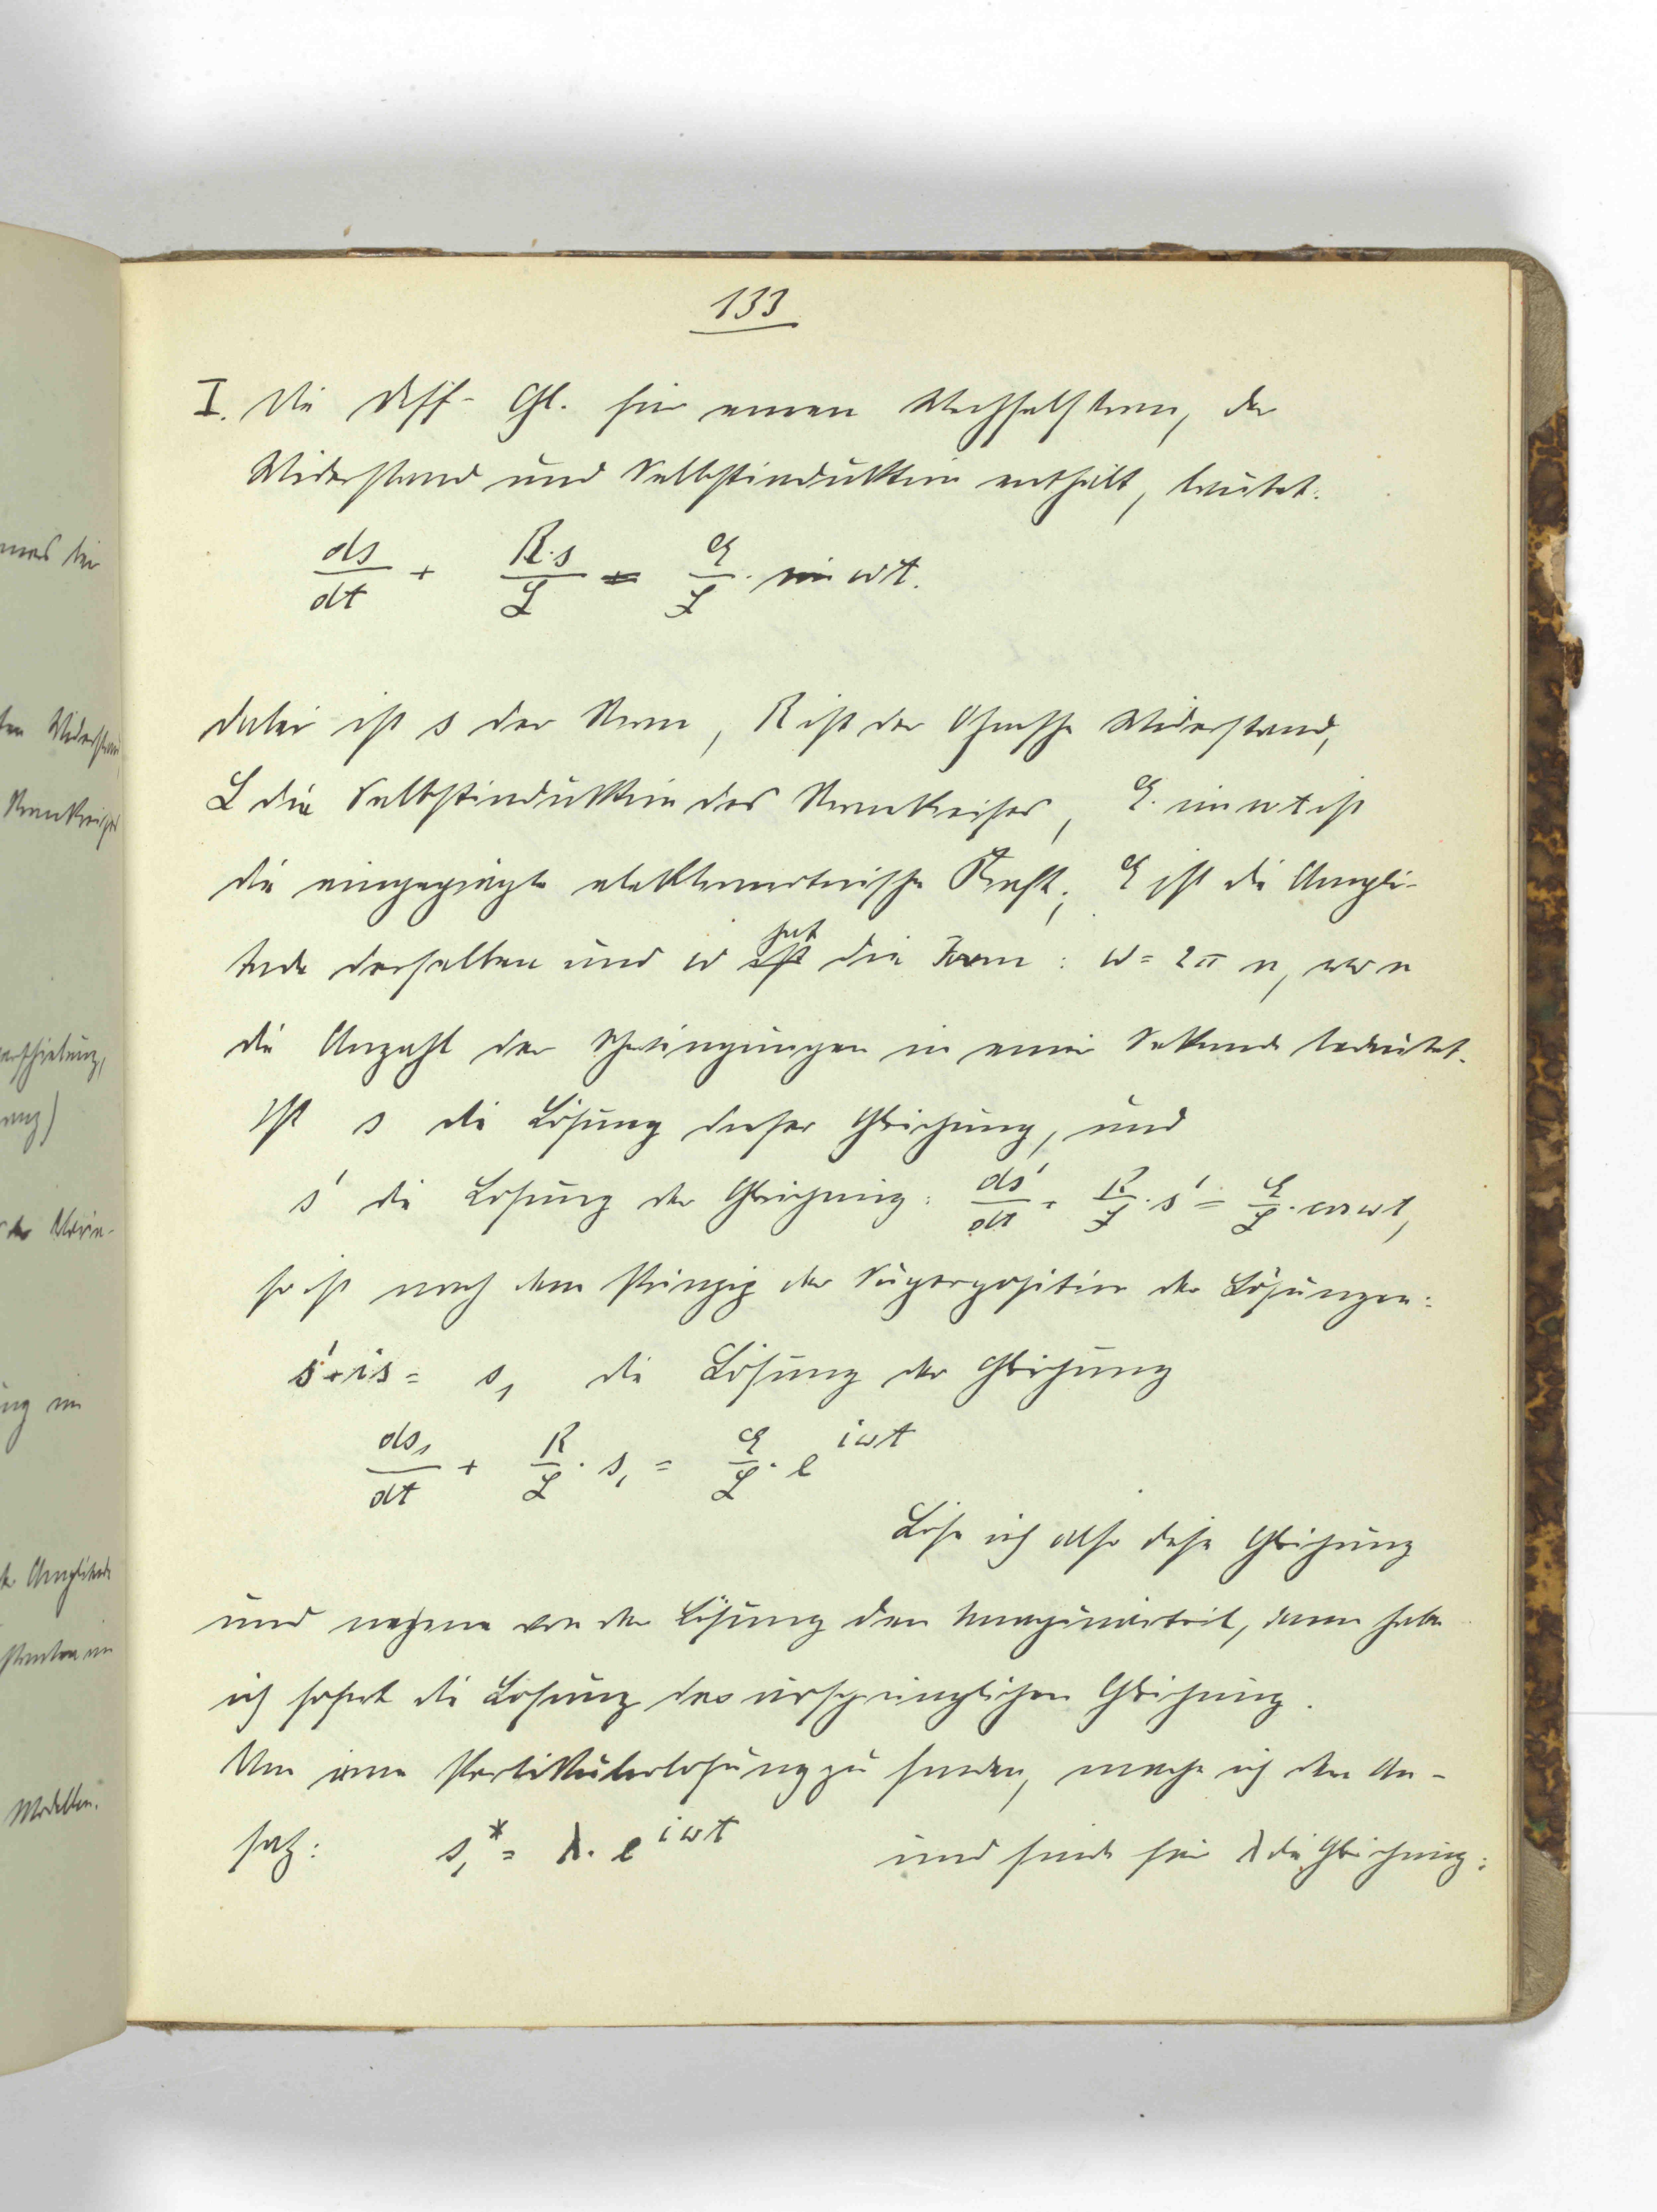 133
I. Die Diff-Gl. für einen Wechselstrom, der
Widerstand und Selbstinduktion enthält, lautet:
ds/dt + R·s/L = E/L · sin ωt.
dabei ist s der Strom, R ist der Ohmsche Widerstand,
L die Selbstinduktion des Stromkreises, E · sin ωt ist
die eingeprägte elektromotorische Kraft; E ist die Ampli-
tude derselben und ω hat die Form: ω = 2π n, wo n
die Anzahl der Schwingungen in einer Sekunde bedeutet.
Ist s die Lösung dieser Gleichung, und
s' die Lösung der Gleichung: ds'/dt + R/L · s' = E/L · cos ωt,
so ist nach dem Prinzip der Superposition der Lösungen:
s' + is = s₁ die Lösung der Gleichung
ds₁/dt + R/L · s₁ = E/L · e^{iωt}
Löse ich also diese Gleichung
und nehme von der Lösung den Imaginärteil, dann habe
ich sofort die Lösung der ursprünglichen Gleichung.
Um eine Partikulärlösung zu finden, mache ich den An-
satz: s₁* = λ · e^{iωt} und finde für λ die Gleichung:
Widerstand
Stromkreises
Amplitude
Modellen.